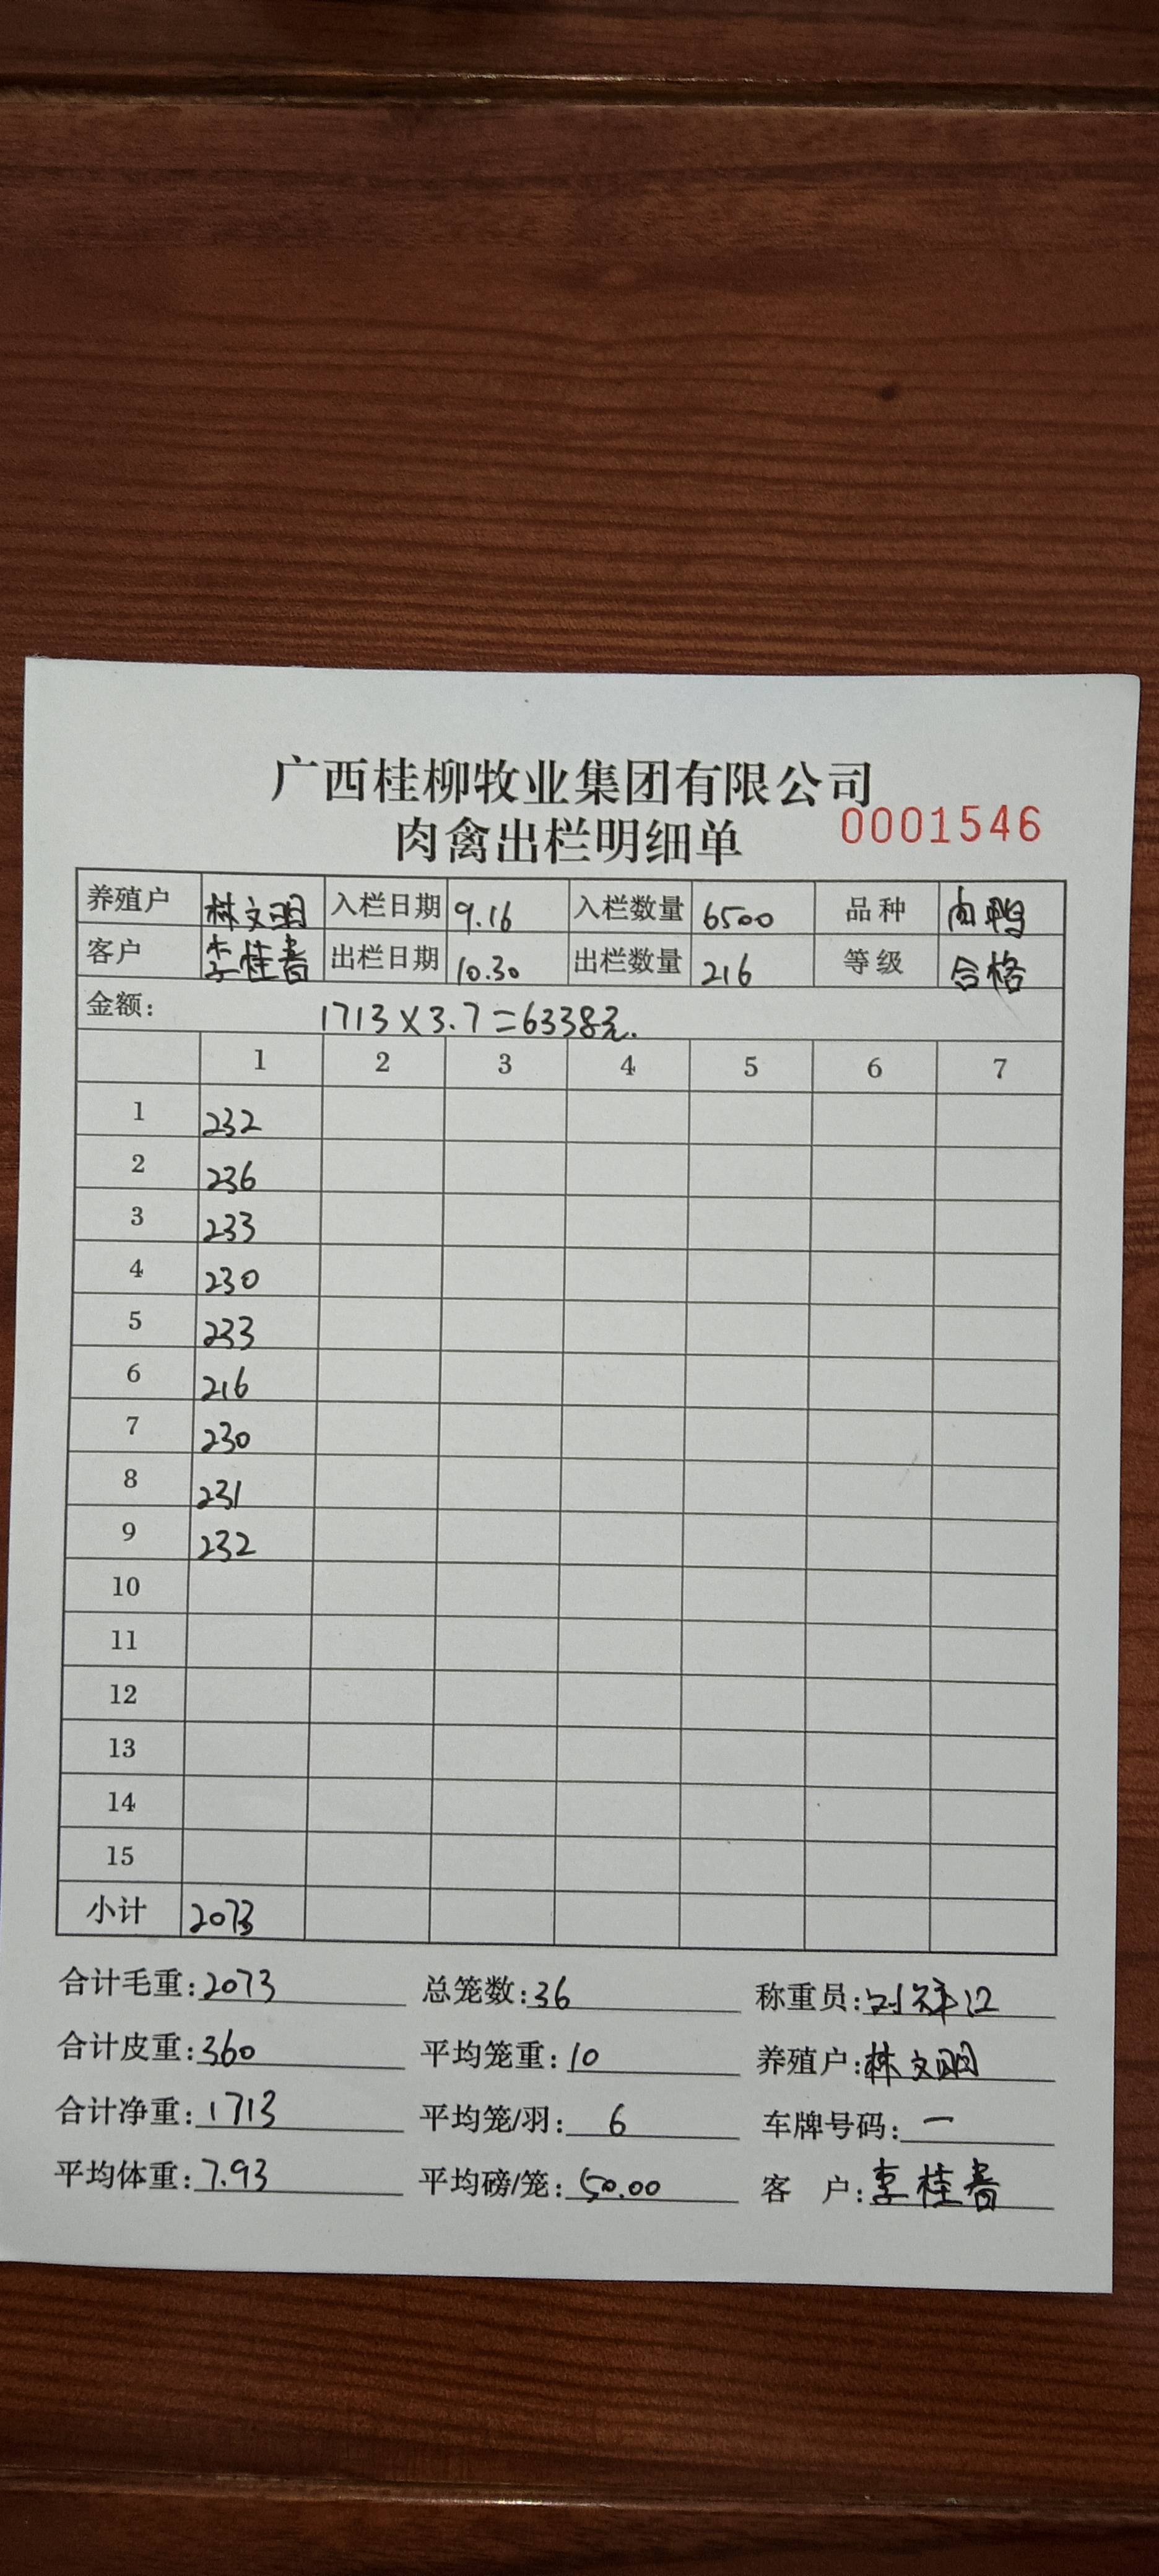 广西桂柳牧业集团有限公司
肉禽出栏明细单 0001546
养殖户 林文明 入栏日期 9.16 入栏数量 6500 品种 肉鸭
客户 李桂春 出栏日期 10.30 出栏数量 216 等级 合格
金额: 1713×3.7=6338元.
1 2 3 4 5 6 7
1 232
2 236
3 233
4 230
5 233
6 216
7 230
8 231
9 232
10
11
12
13
14
15
小计 2073
合计毛重:2073 总笼数:36 称重员:
合计皮重:360 平均笼重:10 养殖户:林文明
合计净重:1713 平均笼/羽: 6 车牌号码: 一
平均体重:7.93 平均磅/笼:50.00 客 户:李桂春